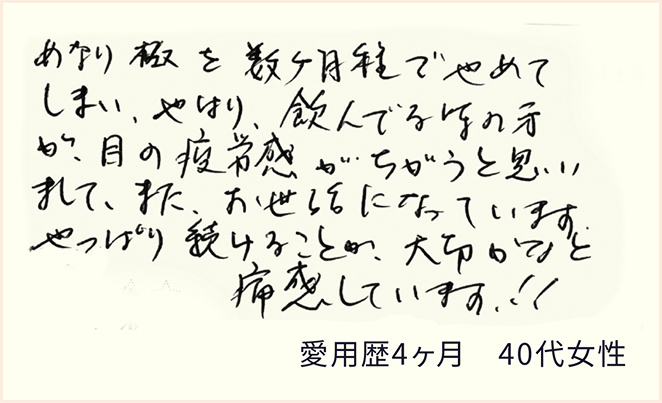 めなり極を数ヶ月程でやめて
しまい、やはり、飲んでる時の方
が、目の疲労感がちがうと思い
まして、また、お世話になっています。
やっぱり続けることが、大切かなと
痛感しています。!!
愛用歴4ヶ月　40代女性